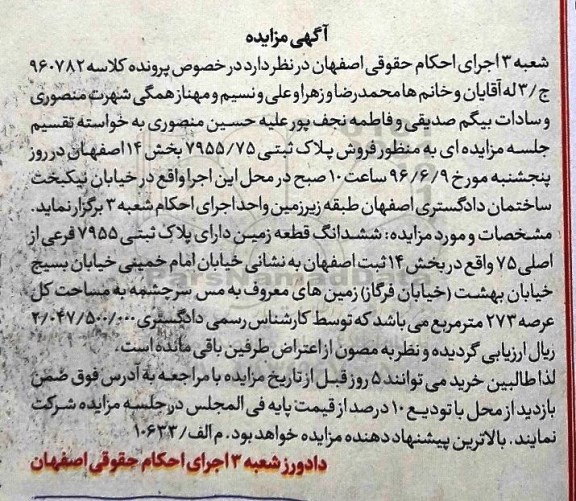 آگهی مزایده
شعبه ۳ اجرای احکام حقوقی اصفهان در نظر دارد در خصوص پرونده کلاسه ۹۶۰۷۸۲
ج/۳ له آقایان و خانم ها محمدرضا و زهرا و علی و نسیم و مهناز همگی شهرت منصوری
و سادات بیگم صدیقی و فاطمه نجف پور علیه حسین منصوری به خواسته تقسیم
جلسه مزایده ای به منظور فروش پلاک ثبتی ۷۹۵۵/۷۵ بخش ۱۴ اصفهان در روز
پنجشنبه مورخ ۹۶/۶/۹ ساعت ۱۰ صبح در محل این اجرا واقع در خیابان نیکبخت
ساختمان دادگستری اصفهان طبقه زیرزمین واحد اجرای احکام شعبه ۳ برگزار نماید.
مشخصات و مورد مزایده: ششدانگ قطعه زمین دارای پلاک ثبتی ۷۹۵۵ فرعی از
اصلی ۷۵ واقع در بخش ۱۴ ثبت اصفهان به نشانی خیابان امام خمینی خیابان بسیج
خیابان بهشت (خیابان فرگاز) زمین های معروف به مس سرچشمه به مساحت کل
عرصه ۲۷۳ مترمربع می باشد که توسط کارشناس رسمی دادگستری ۲/۰۴۷/۵۰۰/۰۰۰
ریال ارزیابی گردیده و نظر به مصون از اعتراض طرفین باقی مانده است.
لذا طالبین خرید می توانند ۵ روز قبل از تاریخ مزایده با مراجعه به آدرس فوق ضمن
بازدید از محل با تودیع ۱۰ درصد از قیمت پایه فی المجلس در جلسه مزایده شرکت
نمایند. بالاترین پیشنهاد دهنده مزایده خواهد بود. م الف/۱۰۶۳۳
دادورز شعبه ۳ اجرای احکام حقوقی اصفهان